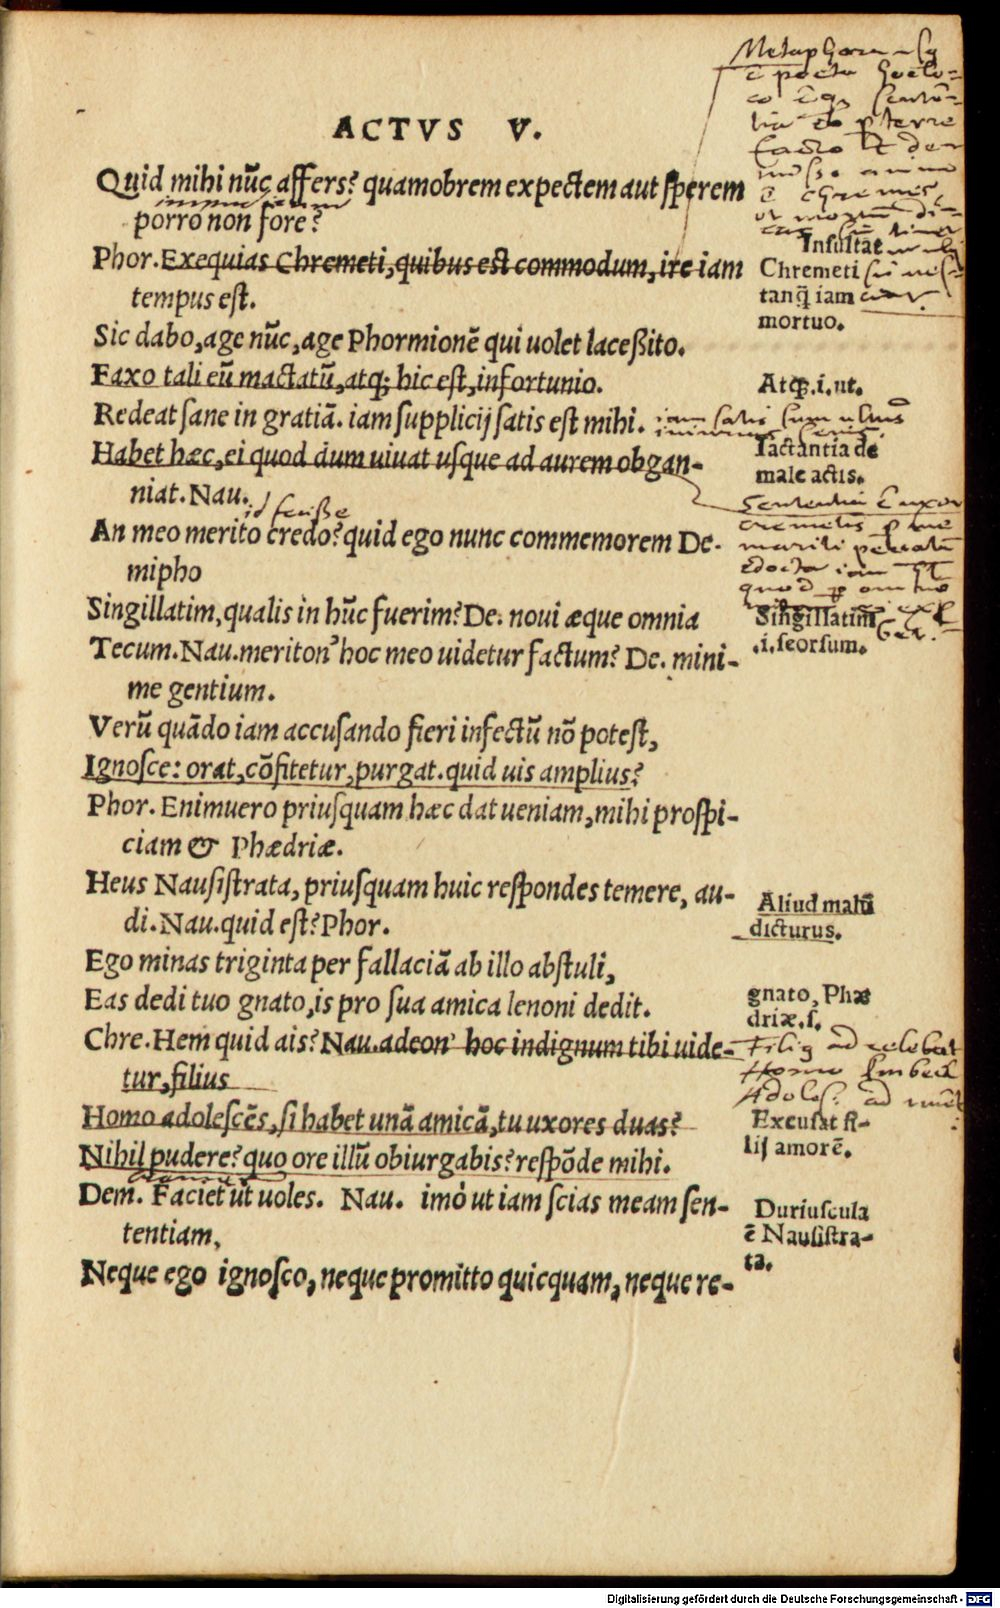 ACTVS V.
Quid mihi nūc affers? quamobrem expectem aut sperem
porro non fore?
Phor. Exequias Chremeti, quibus est commodum, ire iam
tempus est.
Sic dabo, age nūc, age Phormionē qui uolet laceßito.
Faxo tali eū mactatū, atq; hic est, infortunio.
Redeat sane in gratiā. iam supplicij satis est mihi.
Habet hæc, ei quod dum uiuat usque ad aurem obgan-
niat. Nau.
id fecisse
An meo merito credo? quid ego nunc commemorem De-
mipho
Singillatim, qualis in hūc fuerim? De. noui æque omnia
Tecum. Nau. meriton' hoc meo uidetur factum? De. mini-
me gentium.
Verū quādo iam accusando fieri infectū nō potest,
Ignosce: orat, cōfitetur, purgat. quid uis amplius?
Phor. Enimuero priusquam hæc dat ueniam, mihi prospi-
ciam & Phædriæ.
Heus Nausistrata, priusquam huic respondes temere, au-
di. Nau. quid est? Phor.
Ego minas triginta per fallaciā ab illo abstuli,
Eas dedi tuo gnato, is pro sua amica lenoni dedit.
Chre. Hem quid ais? Nau. adeon' hoc indignum tibi uide-
tur, filius
Homo adolescēs, si habet unā amicā, tu uxores duas?
Nihil pudere? quo ore illū obiurgabis? respōde mihi.
Dem. Faciet ut uoles. Nau. imò ut iam scias meam sen-
tentiam,
Neque ego ignosco, neque promitto quicquam, neque re-
Metaphora
Insultat
Chremeti
tanq̄ iam
mortuo.
Atq;.i.ut.
iam satis sum ultus
Iactantia de
male actis.
Singillatim
.i. seorsum.
Aliud malū
dicturus.
gnato, Phæ
driæ.s.
Homo
Excusat fi-
lij amorē.
Duriuscula
ē Nausistra-
ta.
Digitalisierung gefördert durch die Deutsche Forschungsgemeinschaft - DFG